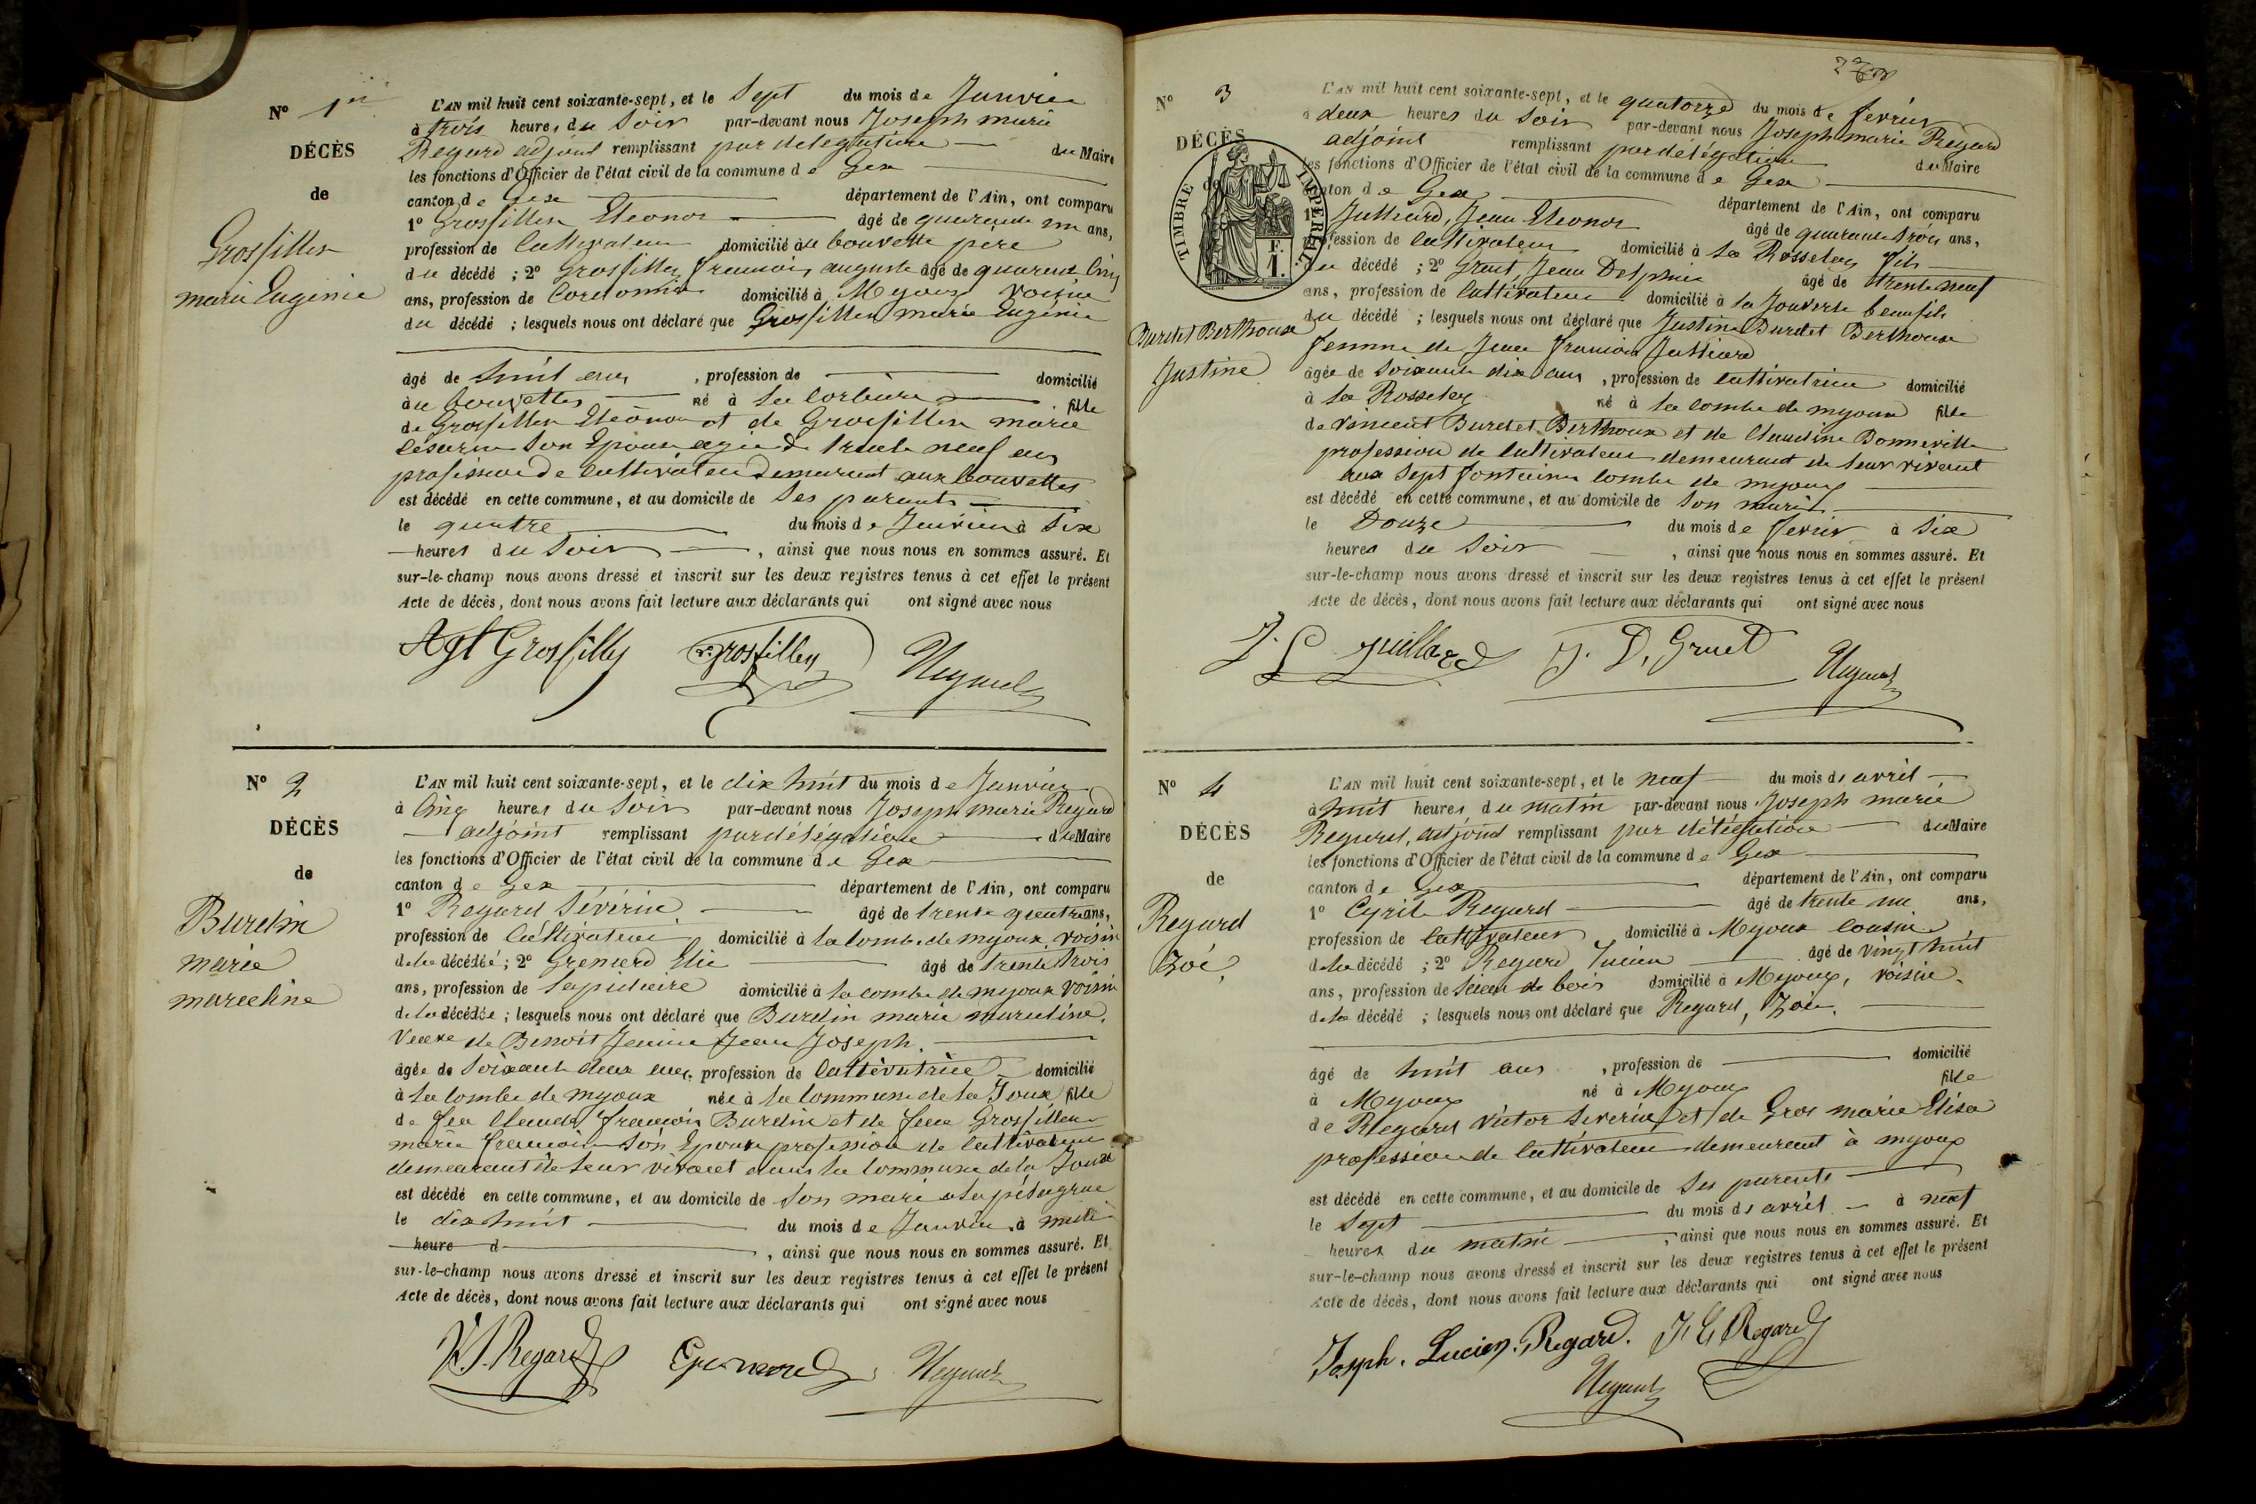 N° 1er
DÉCÈS
de
Grosfilley
marie Eugénie
L'AN mil huit cent soixante-sept, et le Sept du mois de Janvier
à trois heures du Soir par-devant nous Joseph marie
Regard adjoint remplissant par délégation du Maire
les fonctions d'Officier de l'état civil de la commune de Gex
canton de Gex département de l'Ain, ont comparu
1° Grosfilley Eléonor âgé de quarante un ans,
profession de Cultivateur domicilié au bouvettes père
du décédé ; 2° Grosfilley francois auguste âgé de quarente Cinq
ans, profession de Cordonnier domicilié à Mijoux voisin
du décédé ; lesquels nous ont déclaré que Grosfilley marie Eugénie
âgé de huit ans , profession de domicilié
au bouvettes né à la Corbière fille
de Grosfilley Eléonor et de Grosfilley marie
Césarine Son Epouse agée de trente neuf ans
profession de Cultivateur demeurant aux bouvettes
est décédé en cette commune, et au domicile de Ses parents
le quatre du mois de Janvier à Six
heures du Soir , ainsi que nous nous en sommes assuré. Et
sur-le-champ nous avons dressé et inscrit sur les deux registres tenus à cet effet le présent
Acte de décès, dont nous avons fait lecture aux déclarants qui ont signé avec nous
Agt Grosfilley Grosfilley Regard
N° 2
DÉCÈS
de
Burdin
marie
marceline
L'AN mil huit cent soixante-sept, et le dix huit du mois de Janvier
à Cinq heures du Soir par-devant nous Joseph marie Regard
adjoint remplissant par délégation du Maire
les fonctions d'Officier de l'état civil de la commune de Gex
canton de Gex département de l'Ain, ont comparu
1° Regard Sévérin âgé de trente quatre ans,
profession de Cultivateur domicilié à la Combe de myoux voisin
de la décédée ; 2° Grenard Elie âgé de trente trois
ans, profession de lapidaire domicilié à la combe de myoux voisin
de la décédée ; lesquels nous ont déclaré que Burdin marie marceline
Veuve de Benoit Jeune Jean Joseph
âgée de Soixante deux ans, profession de Cultivatrice domicilié
à la Combe de myoux née à la Commune de la Joux fille
de feu Claude francois Burdin et de feue Grosfilley
marie francoise Son Epouse profession de Cultivateur
demeurant de leur vivant dans la Commune de la Joux
est décédé en cette commune, et au domicile de Son mari
le dix huit du mois de Janvier à midi
heure d , ainsi que nous nous en sommes assuré. Et
sur-le-champ nous avons dressé et inscrit sur les deux registres tenus à cet effet le présent
Acte de décès, dont nous avons fait lecture aux déclarants qui ont signé avec nous
V. S. Regard Grenard Regard
N° 3
DÉCÈS
de
TIMBRE IMPÉRIAL
F.
1.
Burdet Berthoux
Justine
L'AN mil huit cent soixante-sept, et le quatorze du mois de fevrier
à deux heures du Soir par-devant nous Joseph marie Regard
adjoint remplissant par délégation du Maire
les fonctions d'Officier de l'état civil de la commune de Gex
canton de Gex département de l'Ain, ont comparu
1° Julliard, Jean Eleonor âgé de quarante trois ans,
profession de Cultivateur domicilié à la Rosseley fils
du décédé ; 2° Gruet, Jean Delphin âgé de trente neuf
ans, profession de Cultivateur domicilié à la Jouverte beaufils
du décédé ; lesquels nous ont déclaré que Justine Burdet Berthoux
femme de Jean francois Julliard
âgée de Soixante dix ans , profession de Cultivatrice domicilié
à la Rosseley né à la combe de myoux fille
de Vincent Burdet Berthoux et de Claudine Bonneville
profession de Cultivateur demeurant de leur vivant
aux Sept fontaines Combe de myoux
est décédé en cette commune, et au domicile de Son mari
le Douze du mois de fevrier à Six
heures du Soir , ainsi que nous nous en sommes assuré. Et
sur-le-champ nous avons dressé et inscrit sur les deux registres tenus à cet effet le présent
Acte de décès, dont nous avons fait lecture aux déclarants qui ont signé avec nous
J. L. Juilliard J. D. Gruet Regard
N° 4
DÉCÈS
de
Regard
Zoé
L'AN mil huit cent soixante-sept, et le neuf du mois de avril
à huit heures du matin par-devant nous Joseph marie
Regard, adjoint remplissant par délégation du Maire
les fonctions d'Officier de l'état civil de la commune de Gex
canton de Gex département de l'Ain, ont comparu
1° Cyrile Regard âgé de trente un ans,
profession de Cultivateur domicilié à Myoux Cousin
de la décédé ; 2° Regard Lucien âgé de Vingt huit
ans, profession de Scieur de bois domicilié à Myoux, voisin
de la décédé ; lesquels nous ont déclaré que Regard, Zoé
âgé de huit ans , profession de domicilié
à Myoux né à Myoux fille
de Regard Victor Severin et de Gros marie Elisa
profession de Cultivateur demeurant à myoux
est décédé en cette commune, et au domicile de Ses parents
le Sept du mois de avril à neuf
heures du matin , ainsi que nous nous en sommes assuré. Et
sur-le-champ nous avons dressé et inscrit sur les deux registres tenus à cet effet le présent
Acte de décès, dont nous avons fait lecture aux déclarants qui ont signé avec nous
Joseph. Lucien. Regard. J. C. Regard
Regard